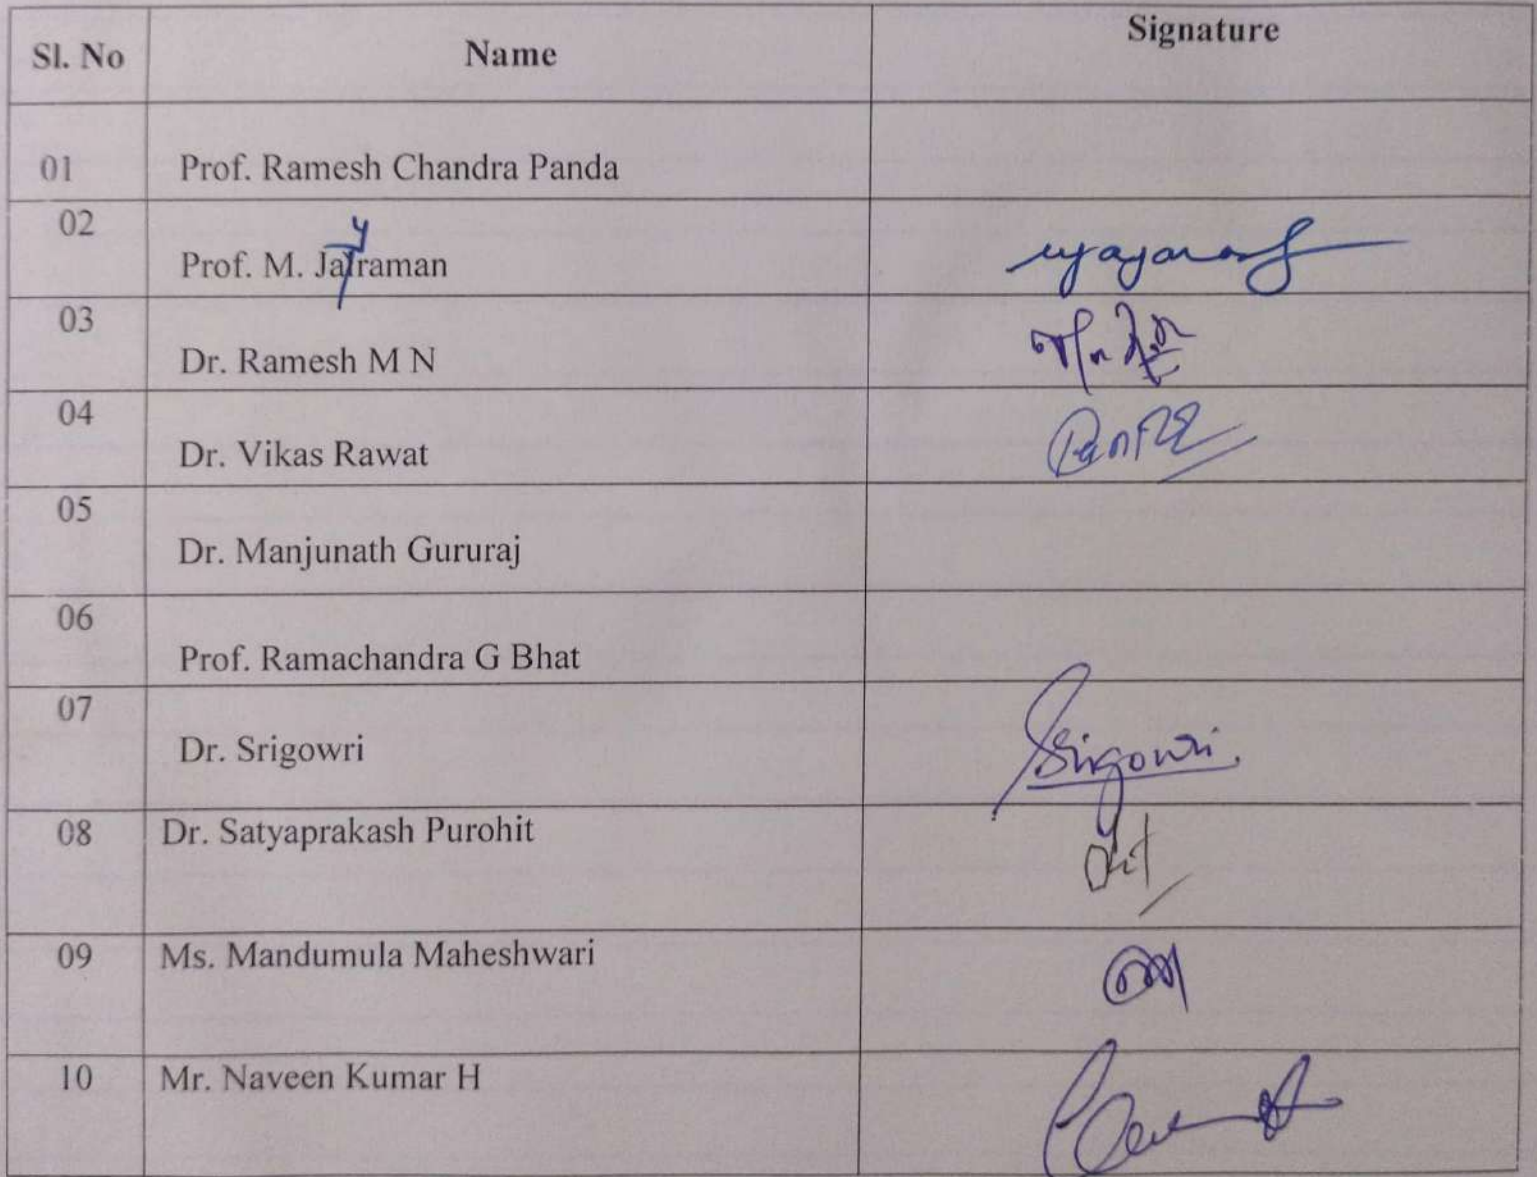 Sl. No Name Signature
01 Prof. Ramesh Chandra Panda
02 Prof. M. Jayraman
03 Dr. Ramesh M N
04 Dr. Vikas Rawat
05 Dr. Manjunath Gururaj
06 Prof. Ramachandra G Bhat
07 Dr. Srigowri Srigowri.
08 Dr. Satyaprakash Purohit
09 Ms. Mandumula Maheshwari
10 Mr. Naveen Kumar H